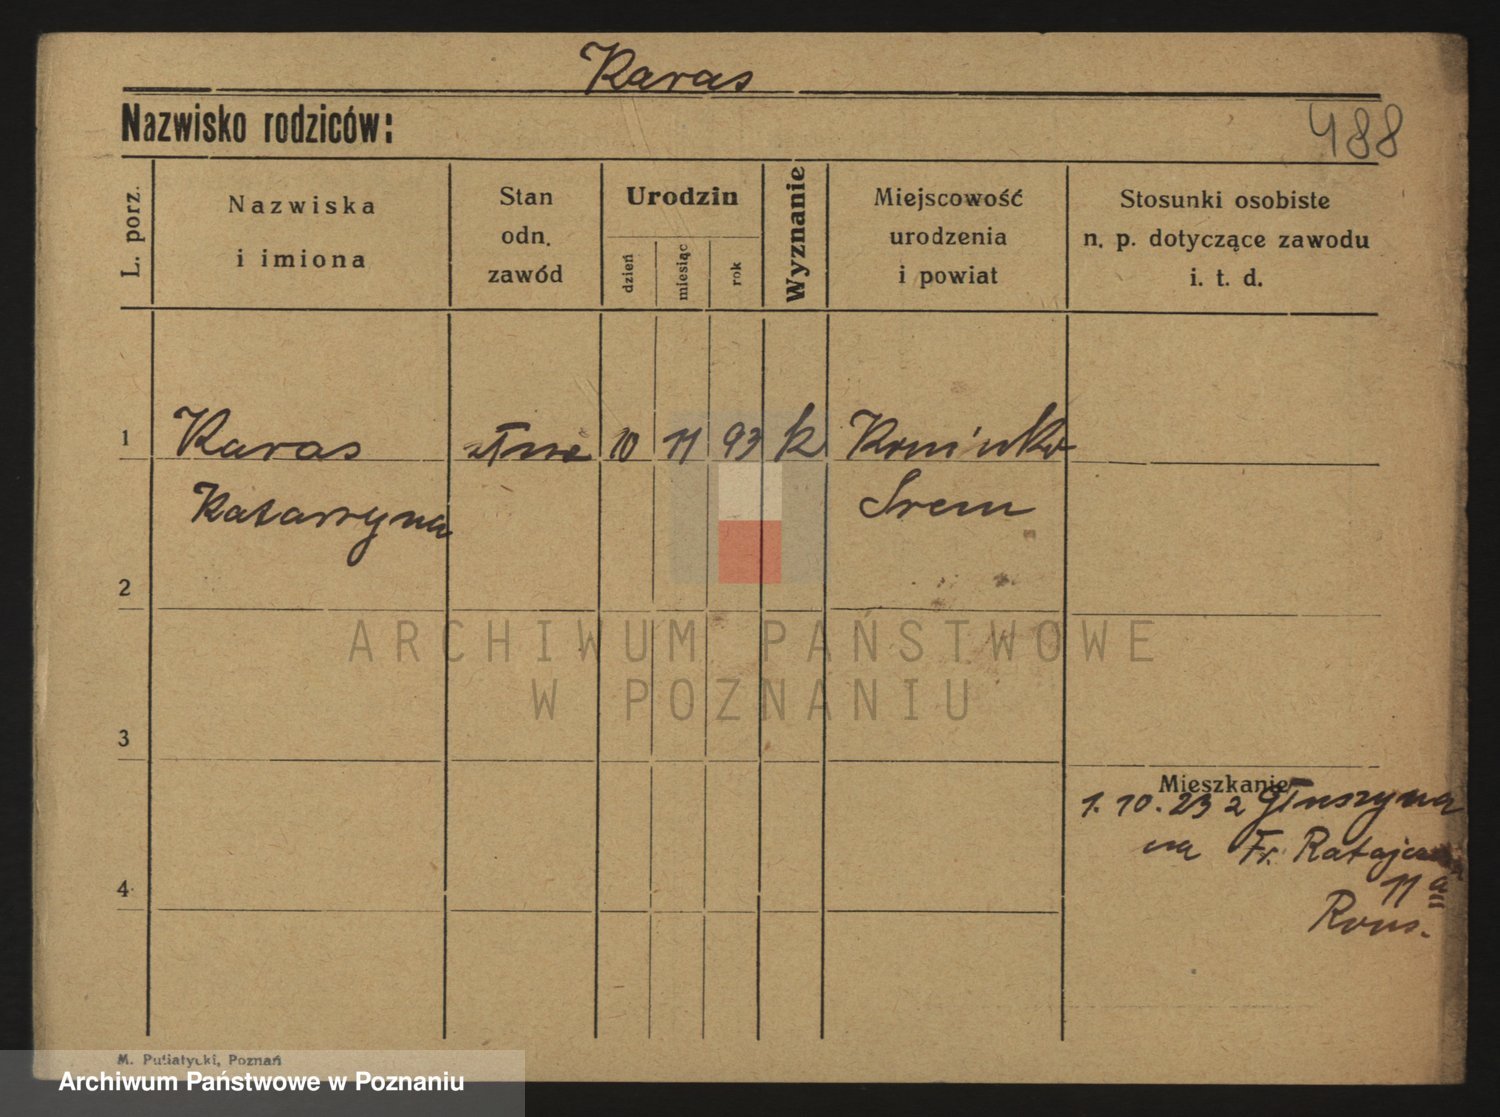 Karas
Nazwisko rodziców:
488
L. porz.
Nazwiska
i imiona
Stan
odn.
zawód
Urodzin
dzień
miesiąc
rok
Wyznanie
Miejscowość
urodzenia
i powiat
Stosunki osobiste
n. p. dotyczące zawodu
i. t. d.
1 Karas 10 11 93 k
Katarzyna Srem
2
ARCHIWUM PAŃSTWOWE
W POZNANIU
3
Mieszkanie
1. 10. 23 z Głuszyna
na Fr. Ratajcza
4
11 a
M. Putiatycki, Poznań
Archiwum Państwowe w Poznaniu